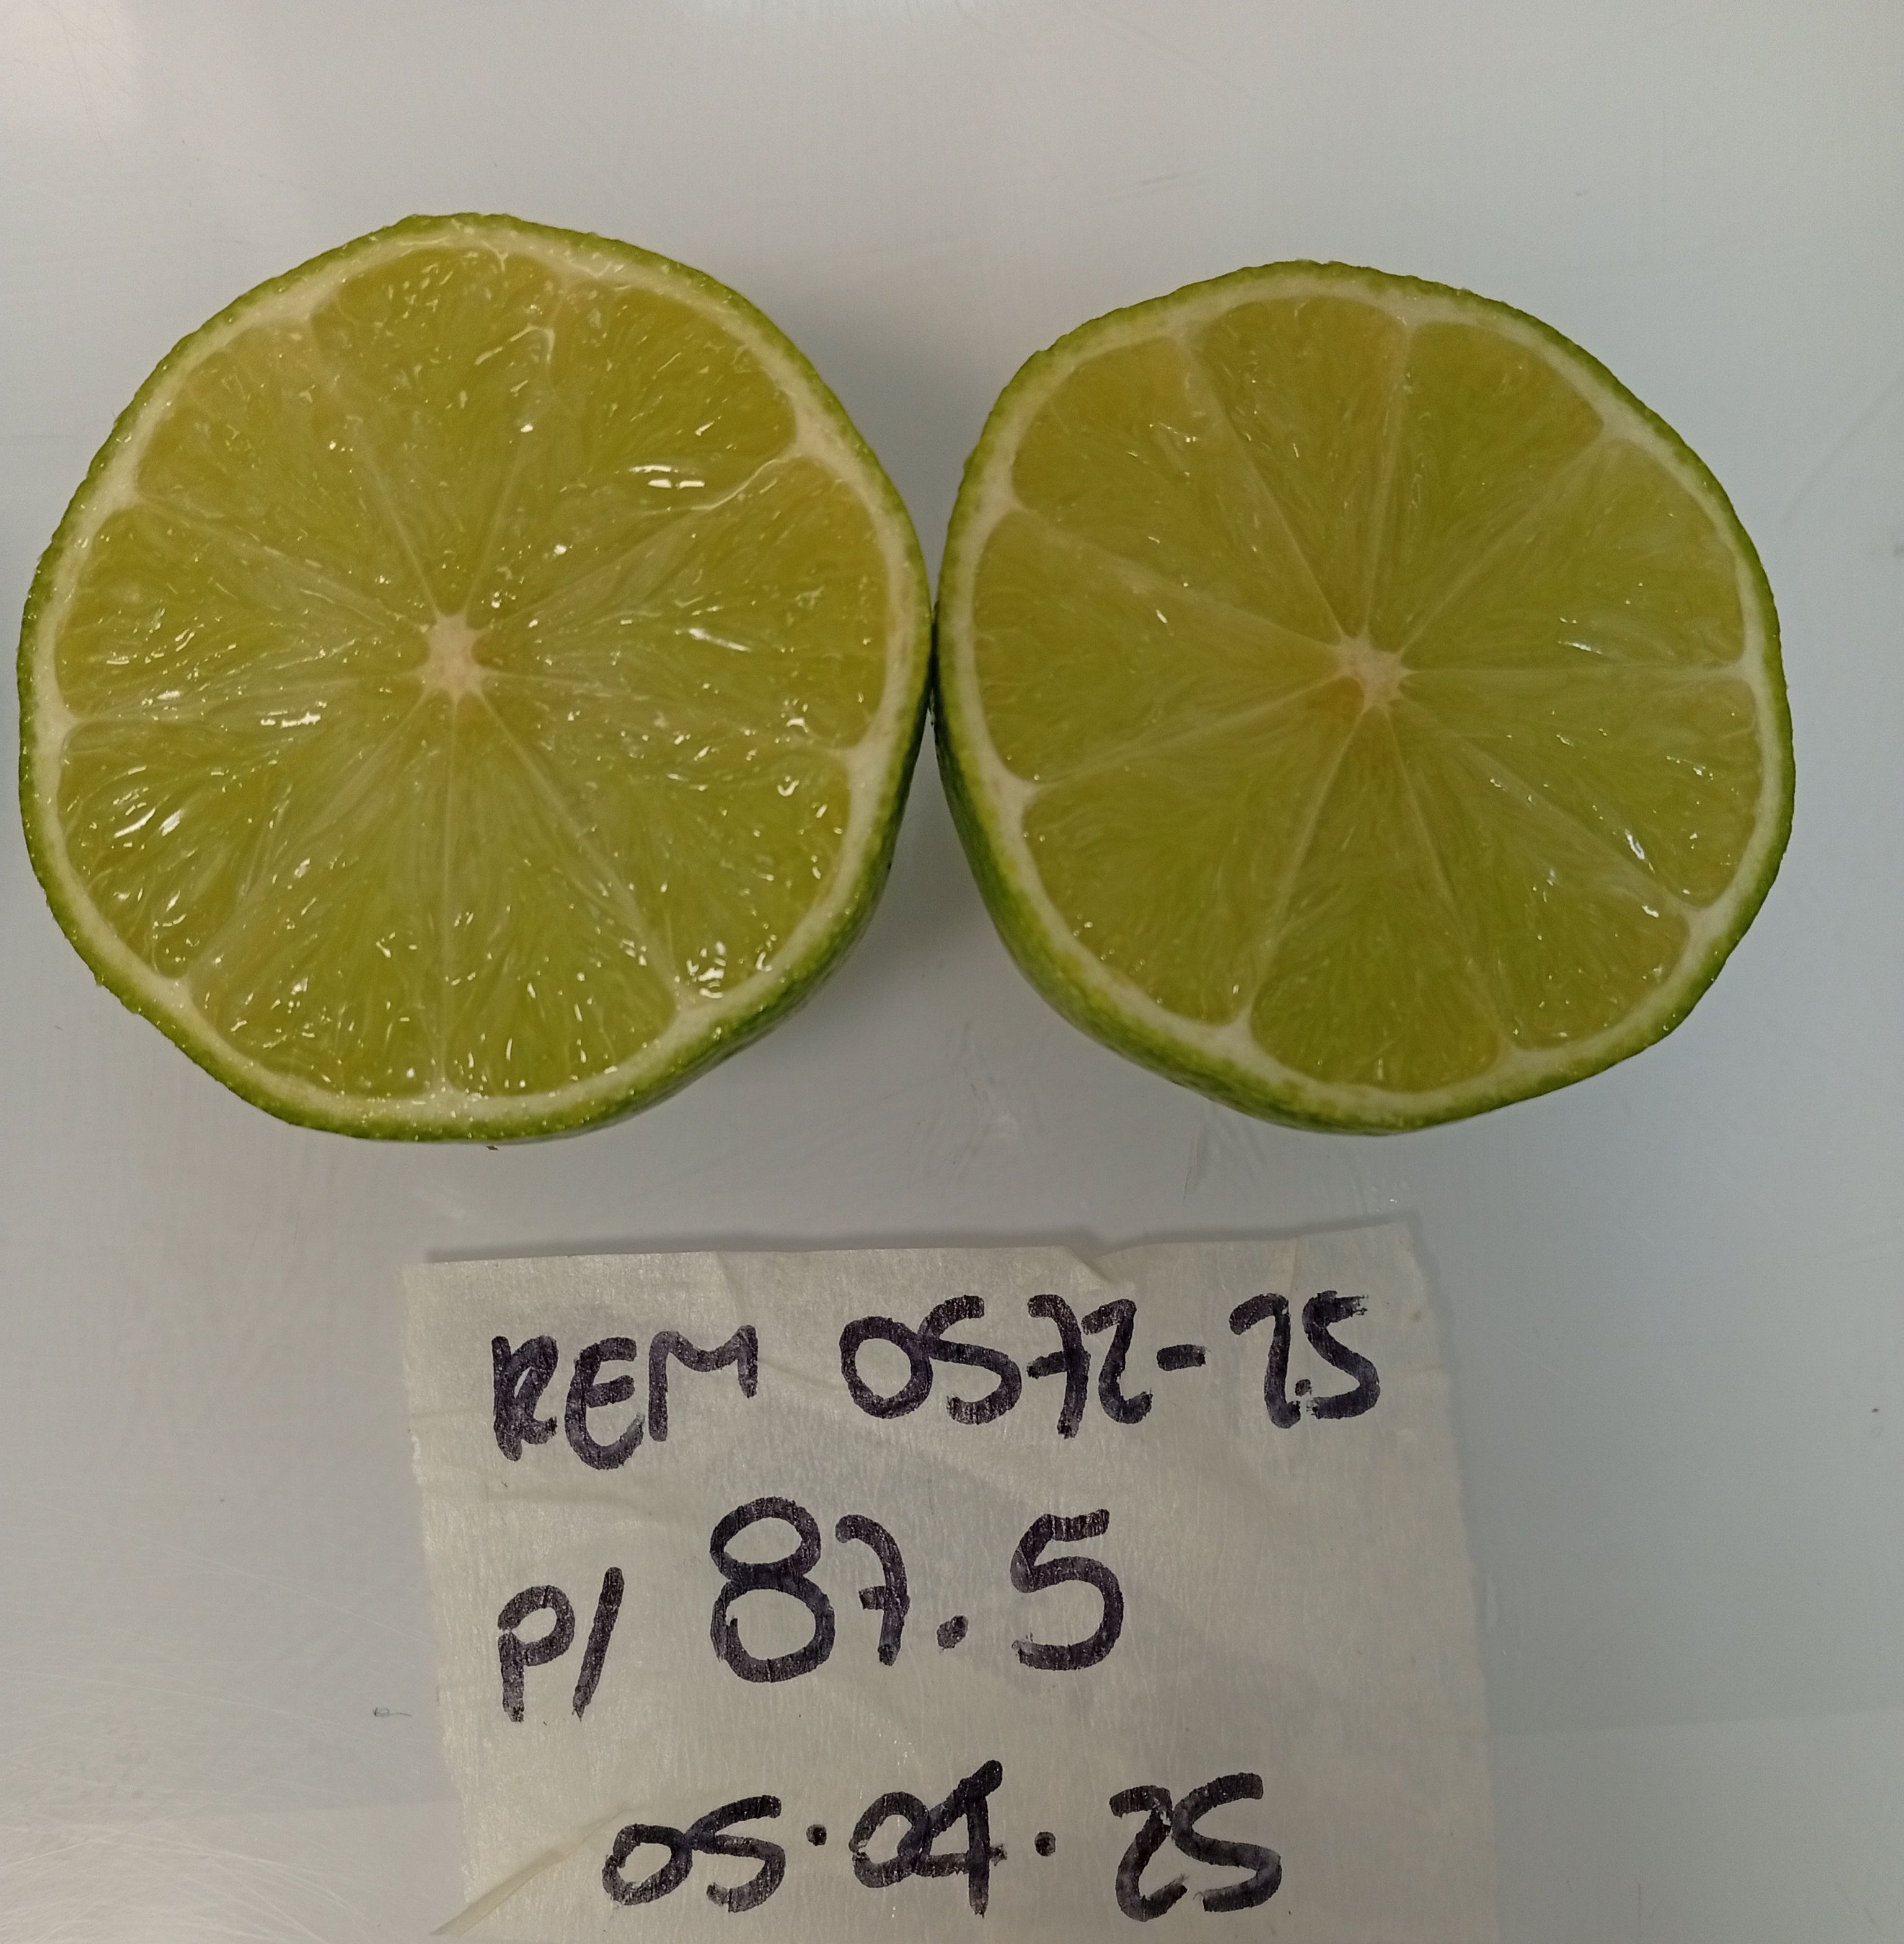 REM 0572-25
P/ 87.5
05.04.25